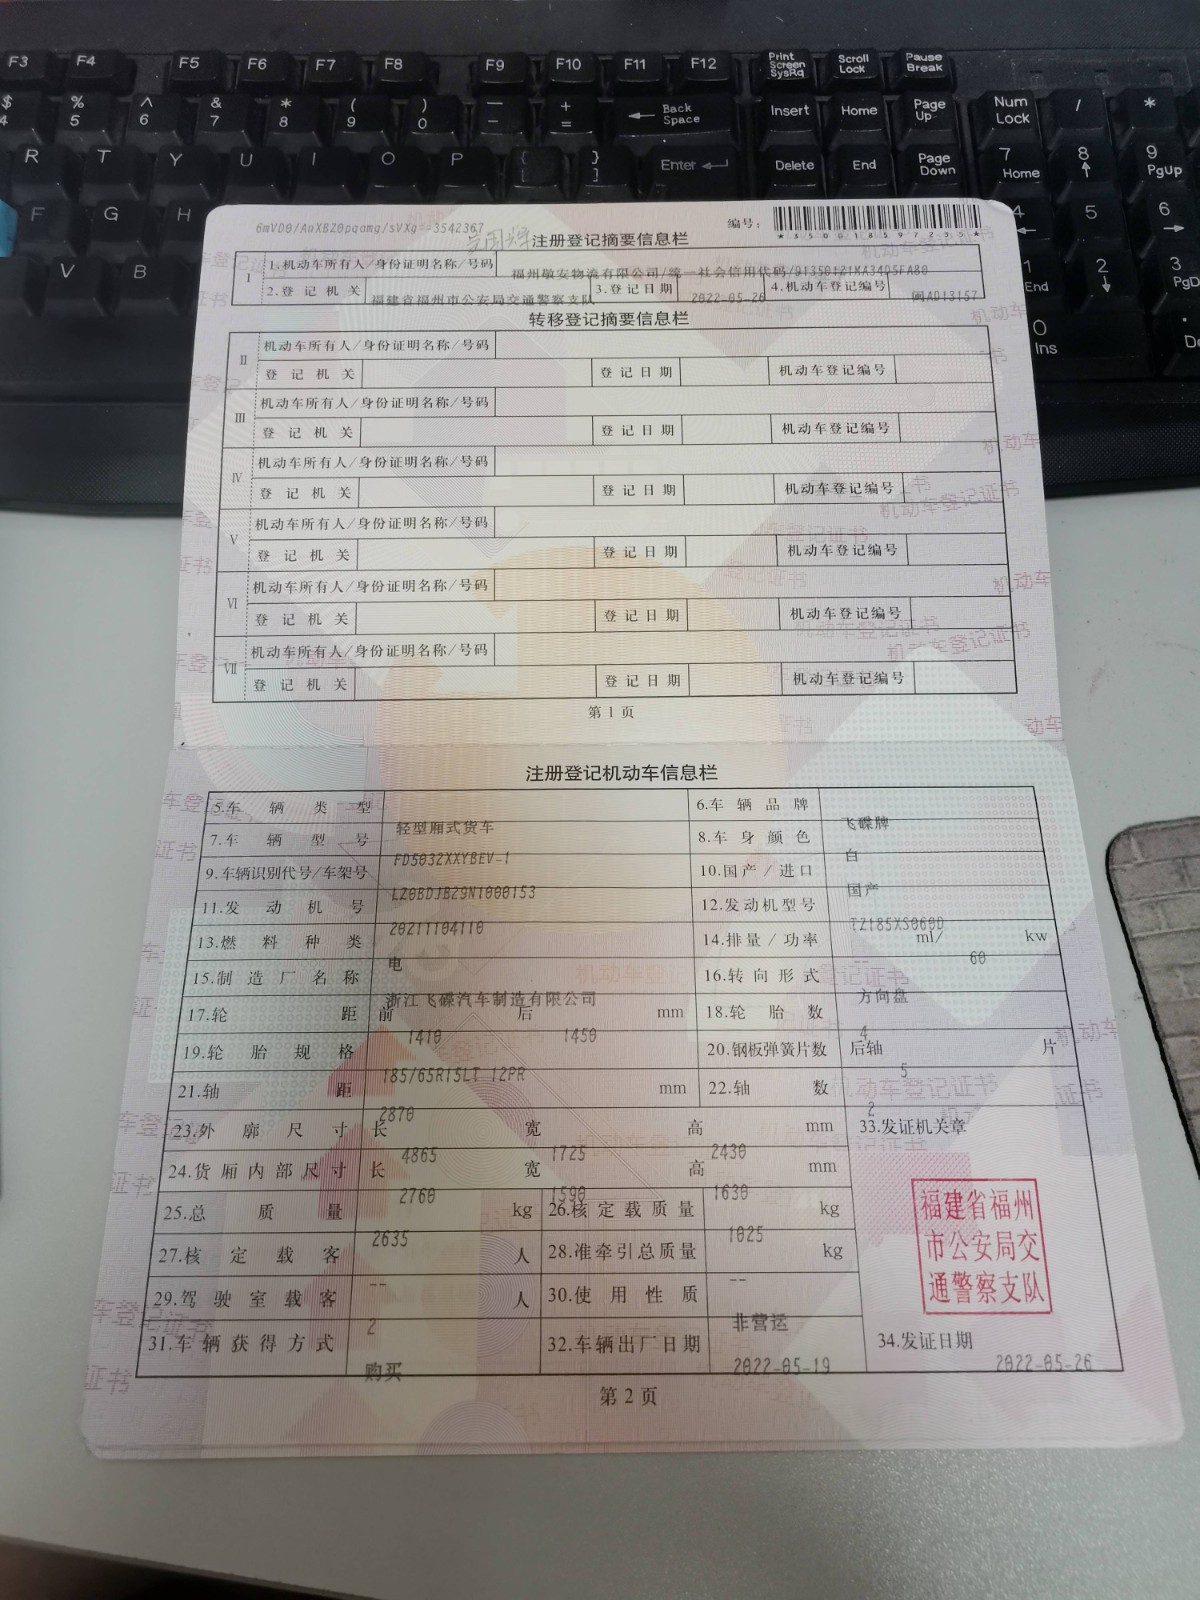 F3 F4 F5 F6 F7 F8 F9 F10 F11 F12 Print Screen SysRq Scroll Lock Pause Break
$ 4 % 5 ^ 6 & 7 * 8 ( 9 ) 0 — - + = Back Space Insert Home Page Up Num Lock / *
R T Y U I O P { [ } ] Enter Delete End Page Down 7 Home 8 9 PgUp
F G H 4 5 6
V B 1 End 2 3 PgD
0 Ins . De
6mVD0/AoX8Z0pqamg/sVXg==3542367
注册登记摘要信息栏
编号:
I
1.机动车所有人/身份证明名称/号码 福州敬安物流有限公司/统一社会信用代码/91350121MA34D5FA80
2.登记机关 福建省福州市公安局交通警察支队 3.登记日期 2022-05-26 4.机动车登记编号 闽AD13157
转移登记摘要信息栏
II 机动车所有人/身份证明名称/号码
登记机关 登记日期 机动车登记编号
III 机动车所有人/身份证明名称/号码
登记机关 登记日期 机动车登记编号
IV 机动车所有人/身份证明名称/号码
登记机关 登记日期 机动车登记编号
V 机动车所有人/身份证明名称/号码
登记机关 登记日期 机动车登记编号
VI 机动车所有人/身份证明名称/号码
登记机关 登记日期 机动车登记编号
VII 机动车所有人/身份证明名称/号码
登记机关 登记日期 机动车登记编号
第1页
注册登记机动车信息栏
5.车辆类型 轻型厢式货车 6.车辆品牌 飞碟牌
7.车辆型号 FD5032XXYBEV-1 8.车身颜色 白
9.车辆识别代号/车架号 LZ0BDJB29N1000153 10.国产/进口 国产
11.发动机号 20211104110 12.发动机型号 TZ185XS060D
13.燃料种类 电 14.排量/功率 -- ml/ 60 kw
15.制造厂名称 浙江飞碟汽车制造有限公司 16.转向形式 方向盘
17.轮距 前 1410 后 1450 mm 18.轮胎数 4
19.轮胎规格 185/65R15LT 12PR 20.钢板弹簧片数 后轴 5 片
21.轴距 2870 mm 22.轴数 2
23.外廓尺寸 长 4865 宽 1725 高 2430 mm 33.发证机关章
24.货厢内部尺寸 长 2760 宽 1590 高 1630 mm
25.总质量 2635 kg 26.核定载质量 1025 kg
27.核定载客 -- 人 28.准牵引总质量 -- kg
29.驾驶室载客 2 人 30.使用性质 非营运
31.车辆获得方式 购买 32.车辆出厂日期 2022-05-19 34.发证日期 2022-05-26
福建省福州
市公安局交
通警察支队
第2页